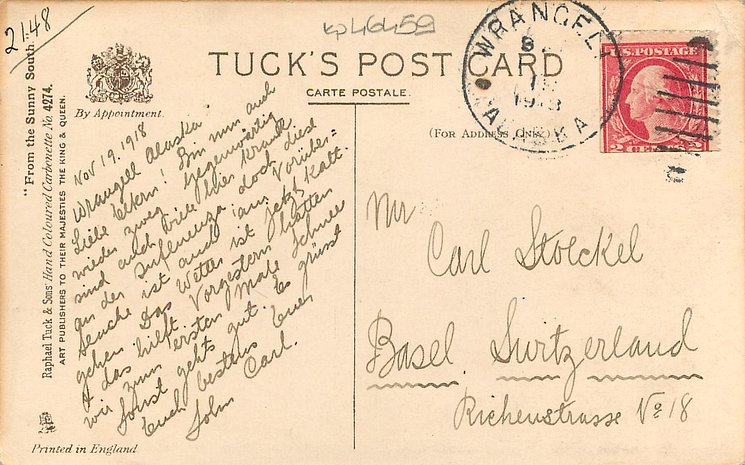 21.48
kp46459
WRANGELL
ALASKA
1918
U.S. POSTAGE
2 CENTS 2
TUCK'S POST CARD
CARTE POSTALE.
(FOR ADDRESS ONLY.)
By Appointment.
"From the Sunny South."
Raphael Tuck & Sons' Hand Coloured Carbonette No. 4274.
ART PUBLISHERS TO THEIR MAJESTIES THE KING & QUEEN.
Nov 19. 1918
Wrangell Alaska.
Liebe Eltern! Bin nun auch
wieder zweg. Gegenwärtig
sind auch viele hier krank
an der Influenza, doch diese
Seuche ist auch am Vorüber=
gehen. Das Wetter ist jetzt kalt
& das hilft. Vorgestern hatten
wir zum ersten Male Schnee
Sonst gehts gut. Es grüsst
Euch bestens Euer
John Carl.
Mr
Carl Stoeckel
Basel Switzerland
Richenstrasse No 18
Printed in England